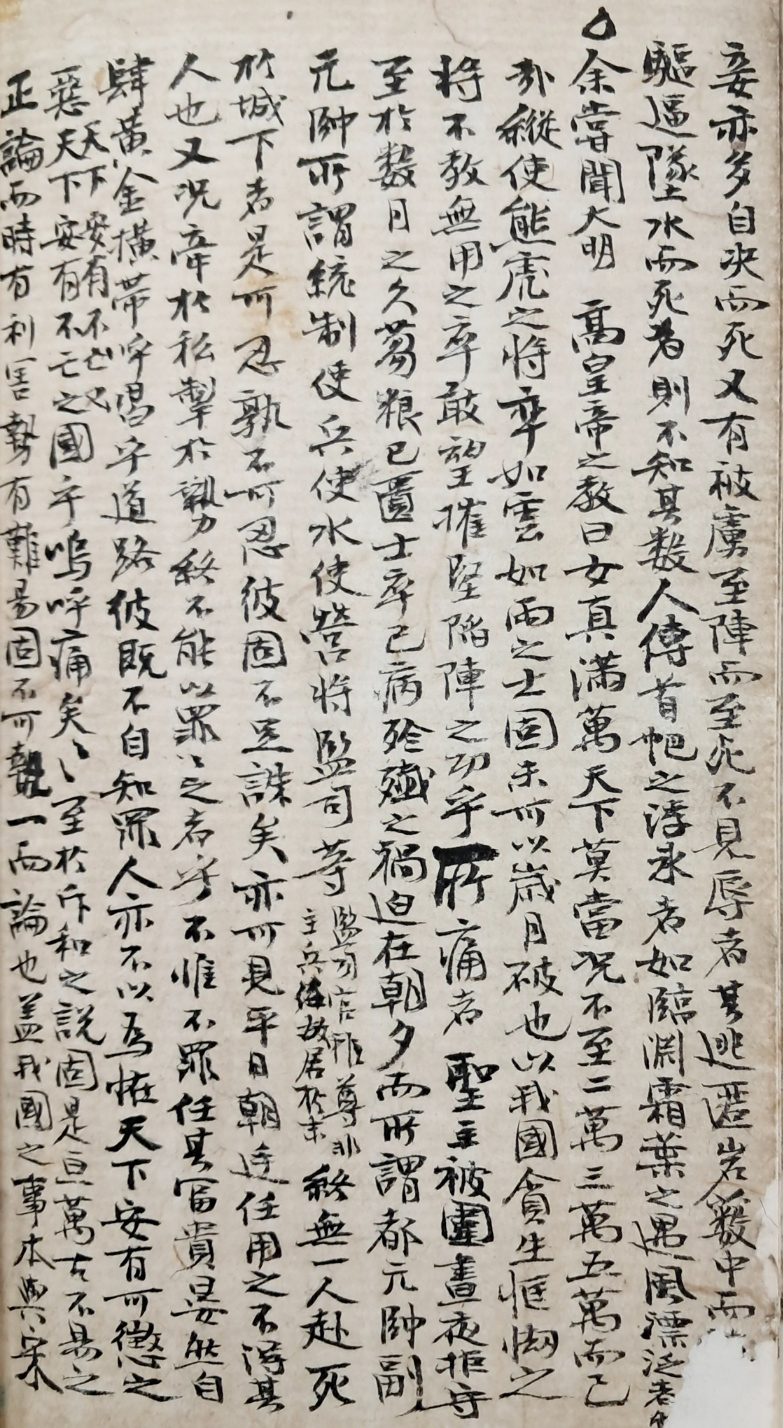 妾亦多自决而死又有被虜至陣而至死不見辱者其逃匿岩藪中而
驅逼墜水而死者則不知其數人傳首帕之浮水者如臨淵霜葉之遇風漂泛者
余嘗聞大明 高皇帝之教曰女真滿萬天下莫當况不至二萬三萬五萬而已
縱使熊虎之將率如雲如雨之士固未可以歲月破也以我國貪生恇㥘之
將不教無用之卒敢望摧堅陷陣之功乎所痛者 聖主被圍晝夜拒守
至於數月之久芻粮已匱士卒已病殄殲之禍迫在朝夕而所謂都元帥副
元帥所謂統制使兵使水使營將監司等監司官雖尊非主兵儘故居於末終無一人赴死
於城下者是可忍孰不可忍彼固不足誅矣亦可見平日朝廷任用之不得其
人也又况牽於私掣於勢終不能以罪〻之者乎不惟不罪任其富貴晏然自
肆黃金橫帶呼唱乎道路彼既不自知罪人亦不以爲恠天下安有可懲之
惡天下安有不亡之國乎嗚呼痛矣〻至於斥和之說固是亘萬古不易之
天下安有不亡
正論而時有利害勢有難易固不可執一而論也盖我國之事本與宋